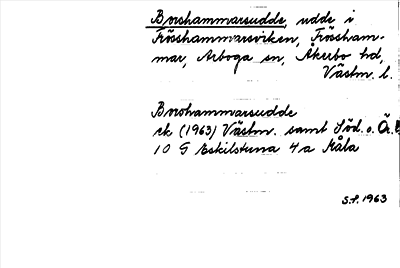 Broshammarsudde, udde i
Frösshammarsviken, Frössham-
mar, Arboga sn, Åkerbo hd,
Västm. l.
Broshammarsudde
ek (1963) Västm. samt Söd. o. Ör.
10 G Eskilstuna 4 a Kåla
S.F. 1963